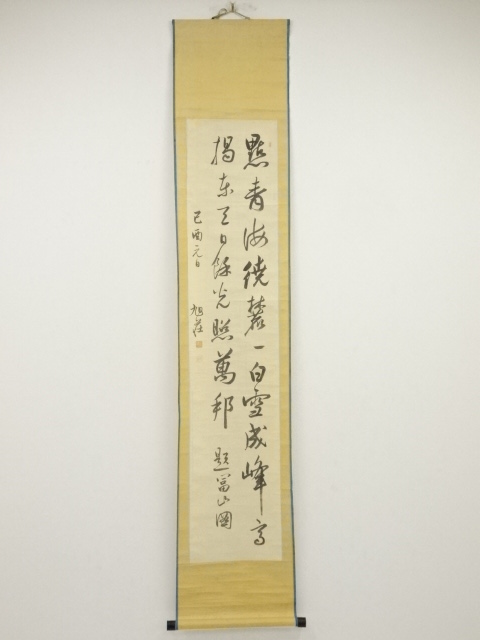 點青海繞麓一白雪成峰高
揭東天日餘光照萬邦　題富山圖
己酉元日　旭莊